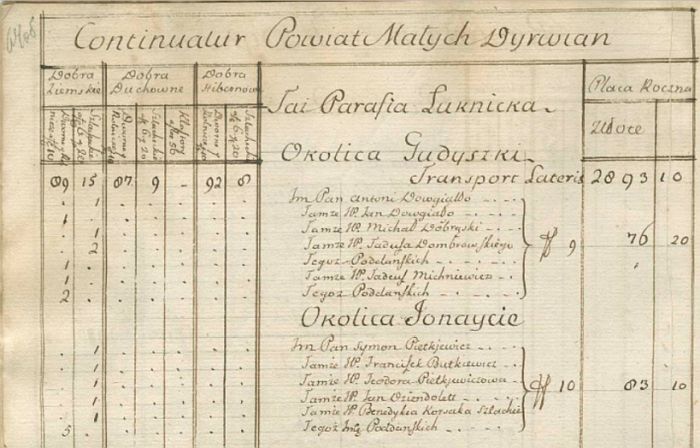 Continuatur Powiat Małych Dyrwian
Dobra Ziemskie
Dobra Duchowne
Dobra Hibernow
Taż Parafia Łuknicka
Płaca Roczna
Złote
Okolica Gudyszki
Transport Lateris
89 15 87 9 - 92 8 2893 10
1 Im Pan Antoni Dowgiałło
1 Tamże W. Jan Dowgiałło
1 Tamże W. Michał Dóbryski
2 Tamże W. Tadusa Dombrowskiego 9 76 20
1 Tegoż Poddańskich
1 Tamże W. Tadeusz Michniewicz
2 Tegoż Poddańskich
Okolica Jonaycie
1 Im Pan Symon Pietkjewicz
1 Tamże W. Francisek Butkiewicz
1 Tamże W. Teodora Pietkjewiczowa
1 Tamże W. Jan Dziendolett 10 83 10
1 Tamże W. Benedykta Korsaka Szlachic
5 Tegoż Poddańskich